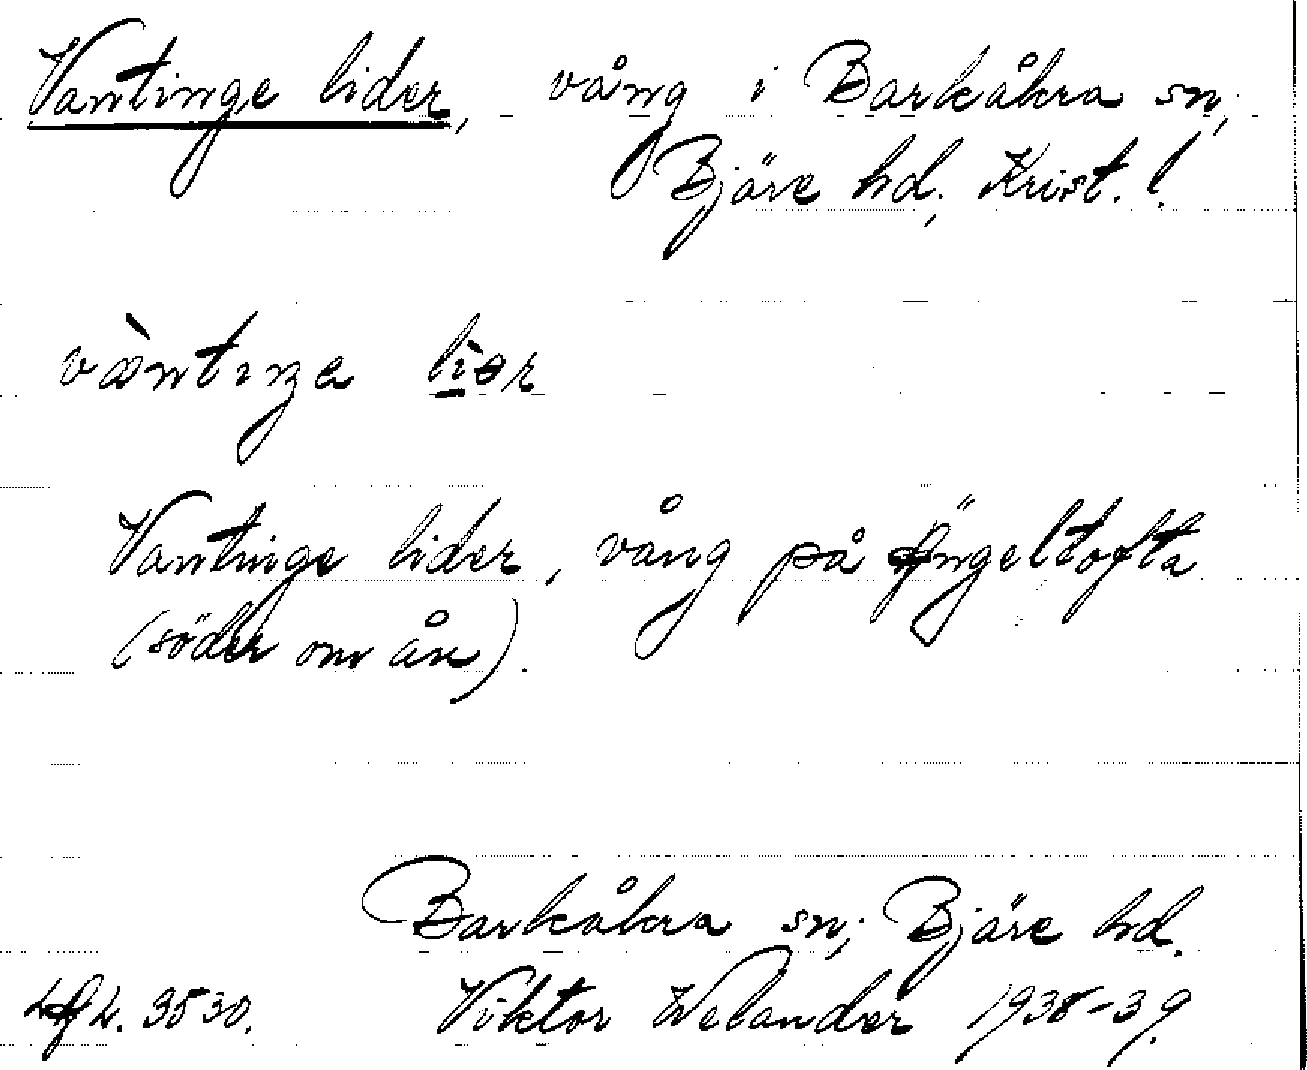 Vantinge lider, vång i Barkåkra sn;
Bjäre hd; Krist. l.
Vantinge lider, vång på Ängeltofta
(söder om ån).
Barkåkra sn; Bjäre hd.
3530. Viktor Welander 1938-39.